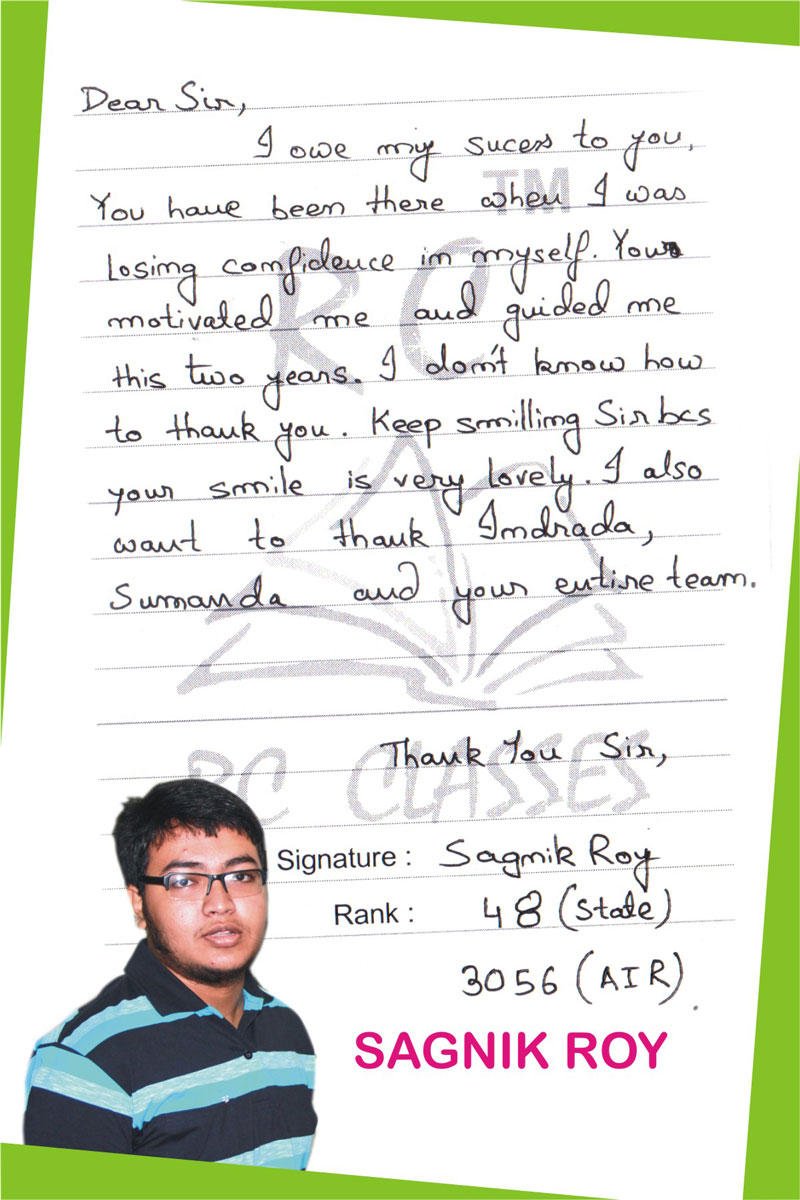 Dear Sir,
I owe my sucess to you,
TM
You have been there when I was
losing confidence in myself. Your
RC
motivated me and guided me
this two years. I don't know how
to thank you. Keep smilling Sir bcs
your smile is very lovely. I also
want to thank Indrada,
Sumanda and your entire team.
Thank You Sir,
RC CLASSES
Signature : Sagnik Roy
Rank : 48 (State)
3056 (AIR)
SAGNIK ROY